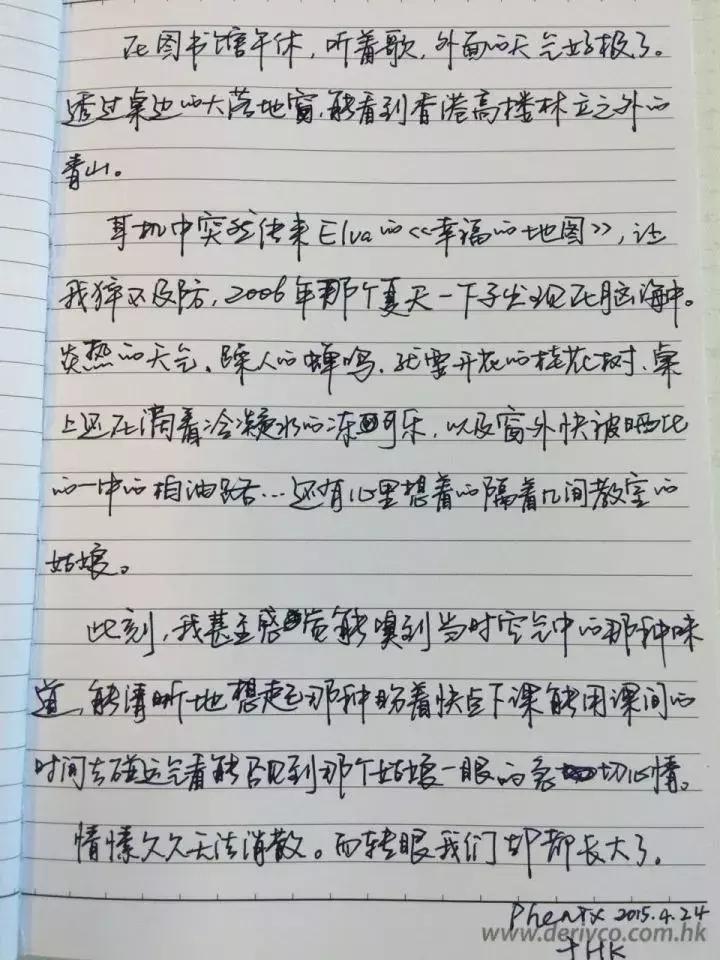 在图书馆午休,听着歌,外面的天气好极了。
透过桌边的大落地窗,能看到香港高楼林立之外的
青山。
耳机中突然传来Elva的《幸福的地图》,让
我猝不及防,2006年那个夏天一下子出现在脑海中。
炎热的天气、躁人的蝉鸣、就要开花的桂花树、桌
上还在滴着冷凝水的冻可乐,以及窗外快被晒化
的一中的柏油路…还有心里想着的隔着几间教室的
姑娘。
此刻,我甚至感觉能嗅到当时空气中的那种味
道,能清晰地想起那种盼着快点下课能用课间的
时间去碰运气看能否见到那个姑娘一眼的急切心情。
情愫久久无法消散。而转眼我们却都长大了。
Phenix 2015.4.24
www.deriyco.com.hk
于HK